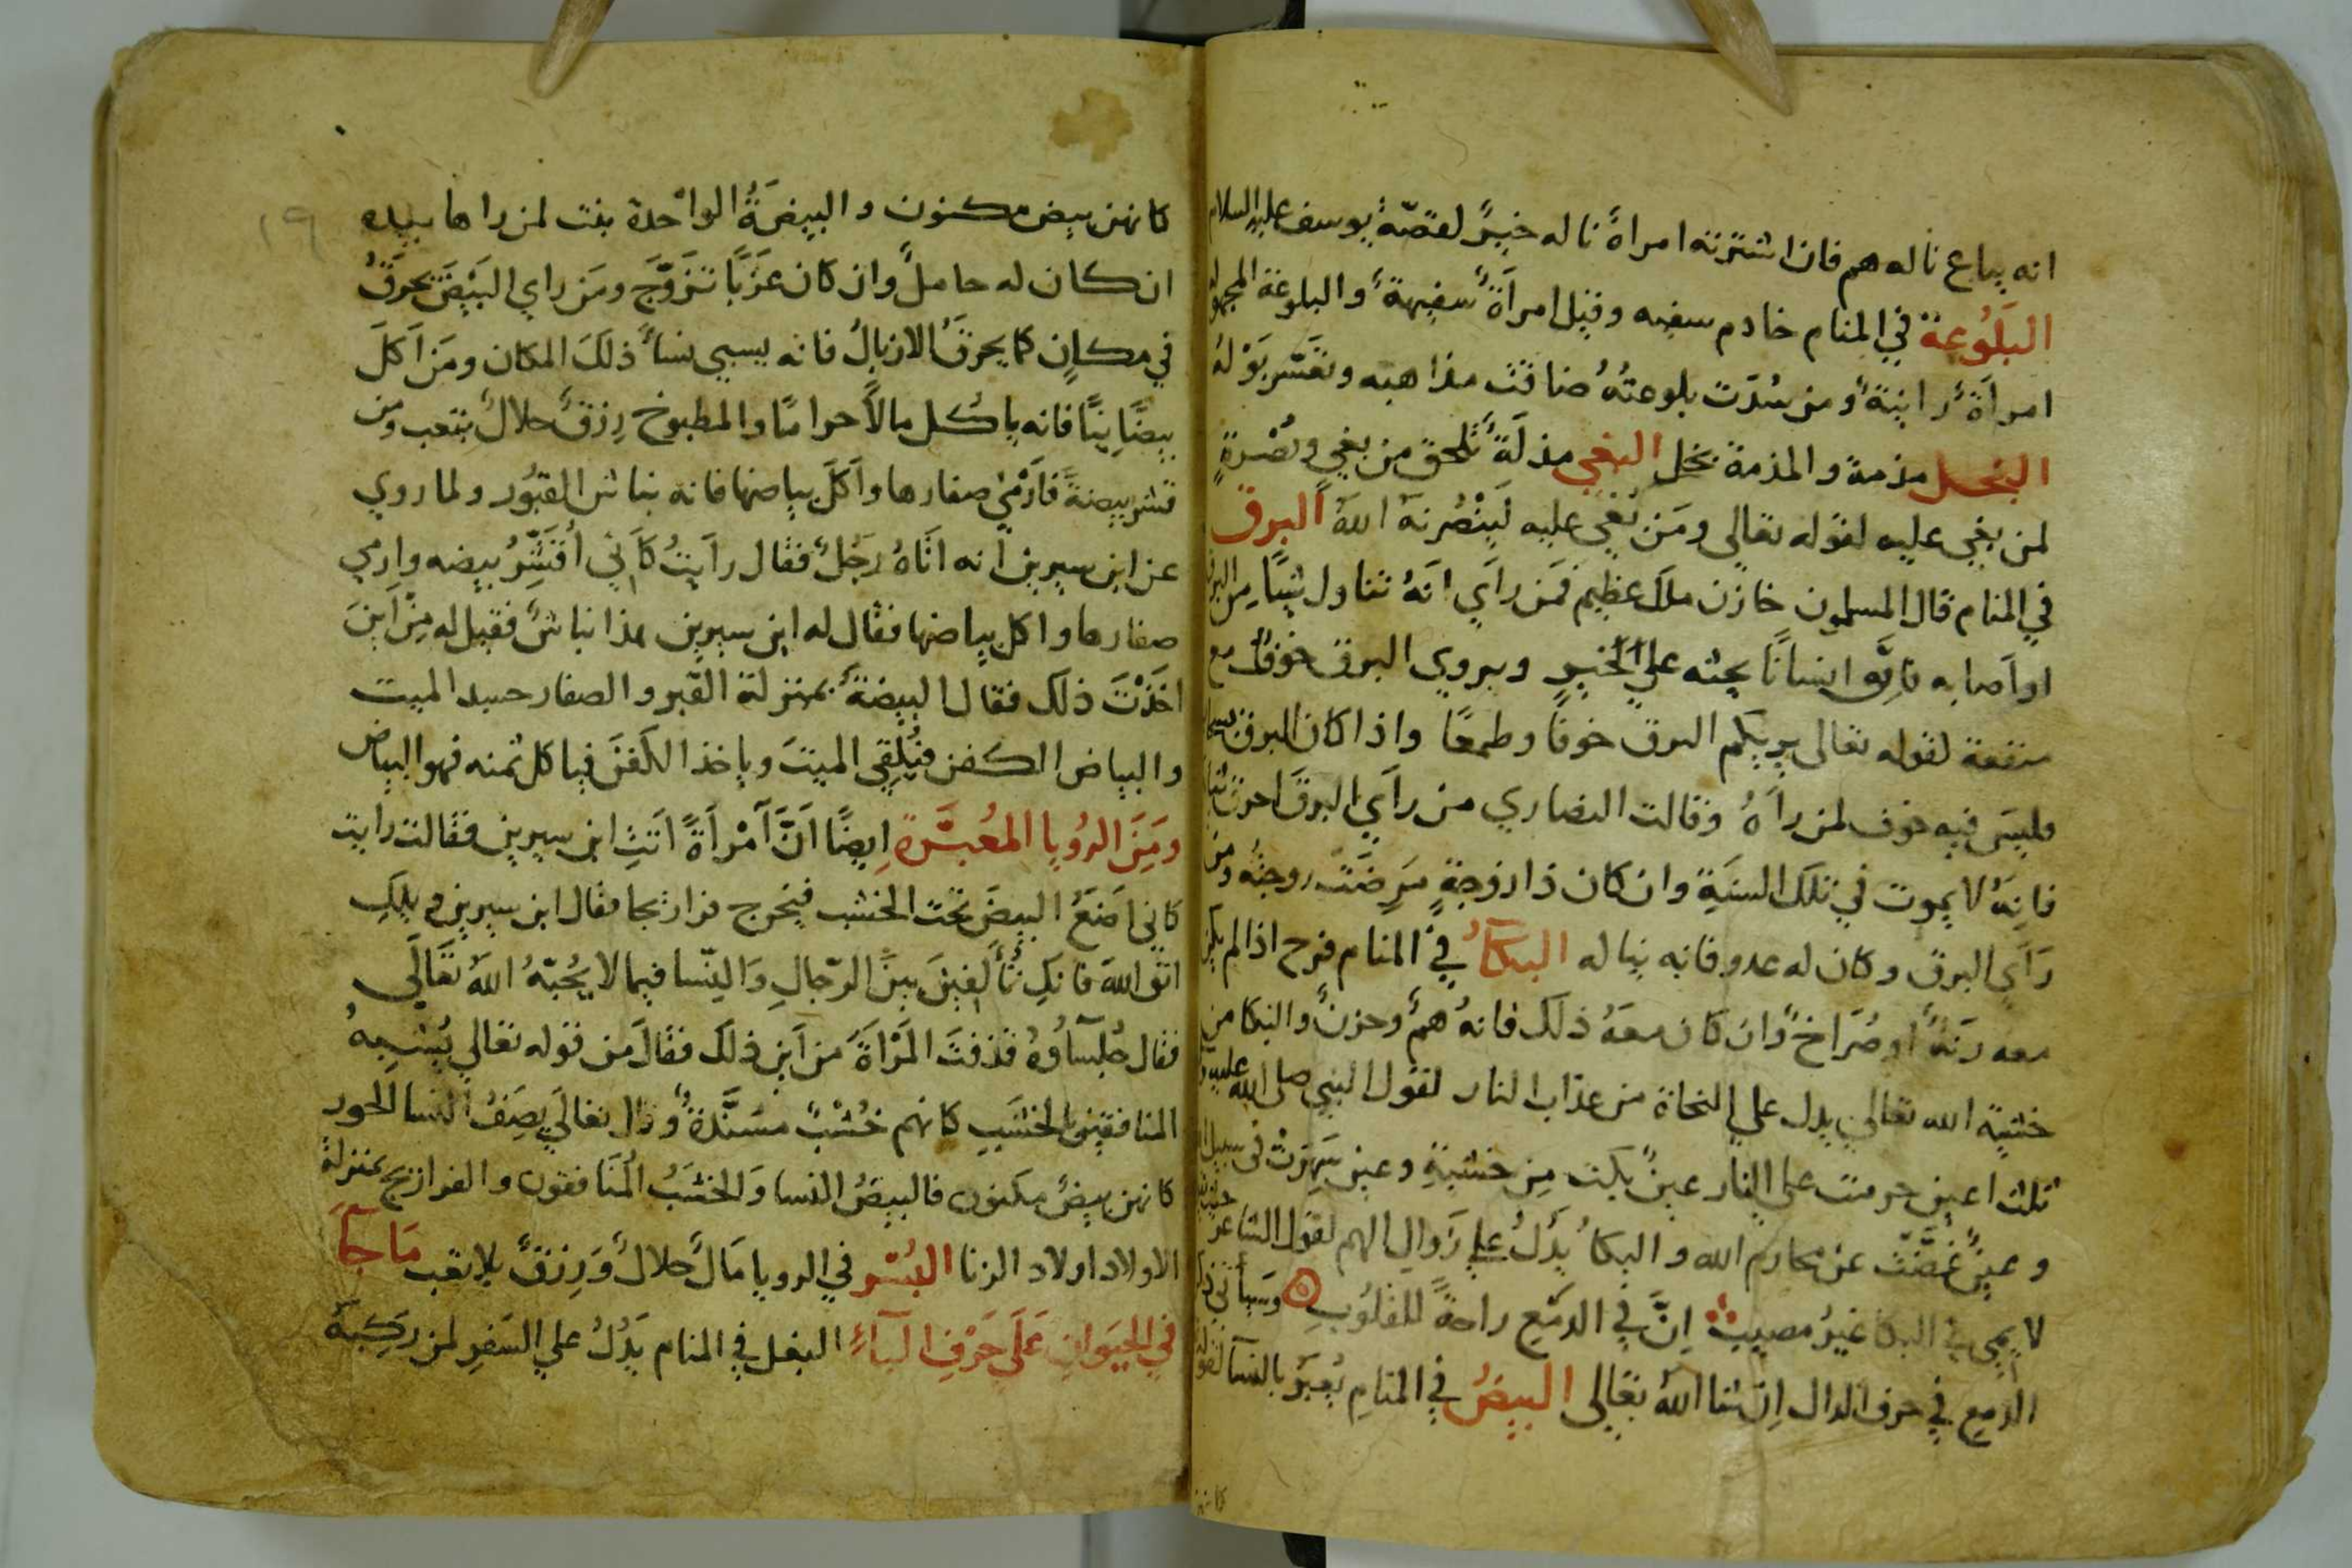 انه يباع ناله هم فان اشترته امراة ناله خير لقصة يوسف عليه السلام
البلوعة في المنام خادم سفيه وقيل امراة سفيهة والبلوعة المجهولة
امراة زانية ومن سدت بلوعته ضاقت مذاهبه وتعسر بوله
البخل مذمة والمذمة بخل البغي مذلة تلحق من بغي ونصرة
لمن بغي عليه لقوله تعالى ومن بغي عليه لينصرنه الله البرق
في المنام قال المسلمون خازن ملك عظيم فمن راي انه تناول شيًا من البرق
او اصابه فانه انسانًا يحثه علي الخير ويروي البرق خوف مع
منفعة لقوله تعالى يريكم البرق خوفًا وطمعًا واذا كان البرق
فليس فيه خوف لمن راه وقالت النصاري من راي البرق احرق
فانه لا يموت في تلك السنة وان كان ذا زوجة مرضت زوجته ومن
راي البرق وكان له عدو فانه يناله البكآ في المنام فرح اذا لم يكن
معه رنة او صراخ وان كان معه ذلك فانه هم وحزن والبكا من
خشية الله تعالى يدل علي النجاة من عذاب النار لقول النبي صلى الله عليه
ثلث اعين حرمت على النار عين بكت من خشية وعين سهرت في سبيل
وعين غضت عن محارم الله والبكا يدل علي زوال الهم لقول الشاعر
في البكا غير مصيب ان في الدمع راحة للقلوب وسياتي
الدمع في حرف الدال ان شا الله تعالى البيض في المنام يعبر بالنسآ لقوله
كانهن
١٩
كانهن بيض مكنون والبيضة الواحدة بنت لمن راها بيده
ان كان له حامل وان كان عزبًا تزوج ومن راي البيض يحرق
في مكان كما يحرق الازبال فانه يسبي نسآ ذلك المكان ومن اكل
بيضًا نيًا فانه ياكل مالاً حرامًا والمطبوخ رزق حلال بتعب ومن
قشر بيضة فارمي صفارها واكل بياضها فانه نباش القبور ولما روي
عن ابن سيرين انه اتاه رجل فقال رايت كاني اقشر بيضه وارمي
صفارها واكل بياضها فقال له ابن سيرين هذا نباش فقيل له من اين
اخذت ذلك فقال البيضة بمنزلة القبر والصفار جسد الميت
والبياض الكفن فيلقي الميت وياخذ الكفن فياكل ثمنه فهو البياض
ومن الرويا المعبرة ايضًا ان امراة اتت ابن سيرين فقالت رايت
كاني اضع البيض تحت الخشب فيخرج فراريجا فقال ابن سيرين ويلك
اتق الله فانك تالفين بين الرجال والنسا فيما لا يحبه الله تعالى
فقال جلسآؤه قذفت المراة من اين ذلك فقال من قوله تعالى يشبه
المنافقين بالخشب كانهم خشب مسندة وقال تعالى يصف النسا الحور
كانهن بيض مكنون فالبيض النسا والخشب المنافقون والفراريج بمنزلة
الاولاد اولاد الزنا البسر في الرويا مال حلال ورزق بلا تعب ما جآ
في الحيوان على حرف البآء البغل في المنام يدل علي السفر لمن ركبه